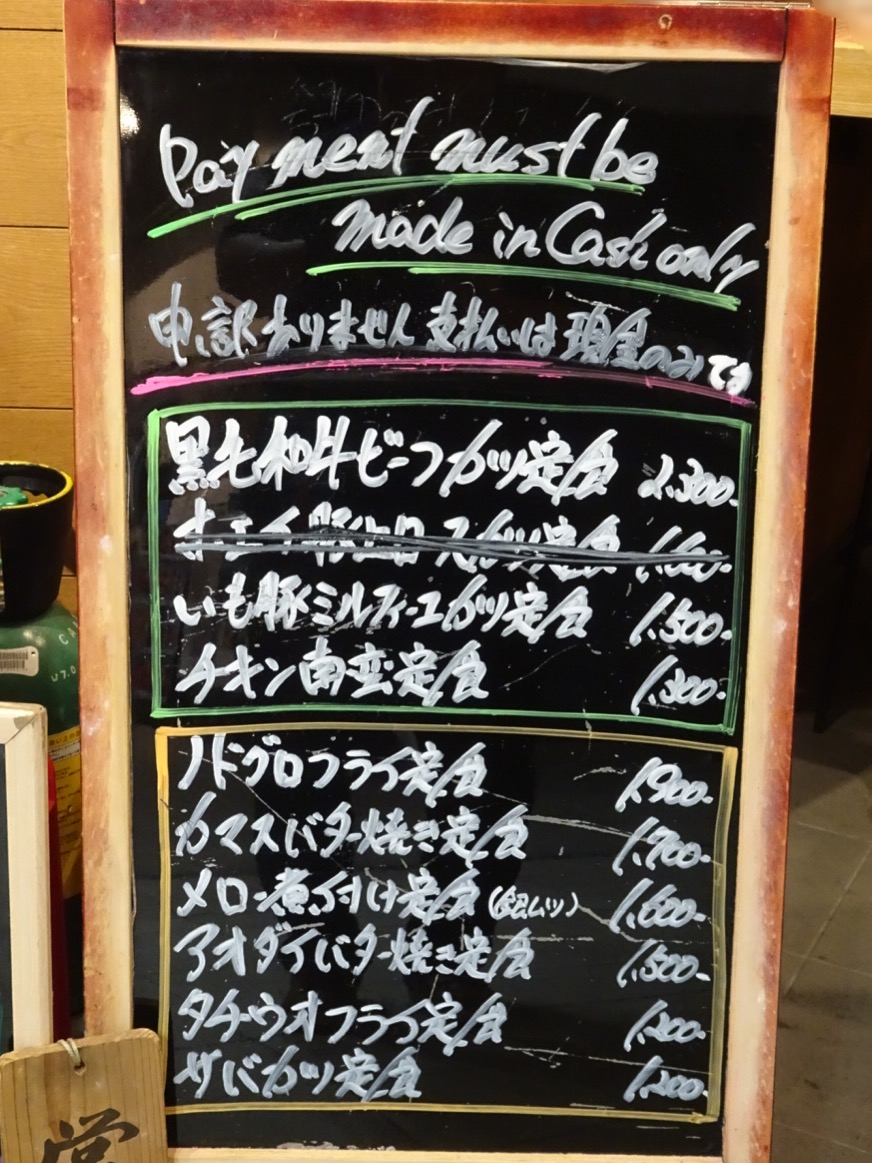 Payment must be
made in Cash only
申し訳ありません 支払いは現金のみです
黒毛和牛ビーフカツ定食 2.300-
ホエイ豚肩ロースカツ定食 1.600-
いも豚ミルフィーユカツ定食 1.500-
チキン南蛮定食 1.300-
ノドグロフライ定食 1.900-
カマスバター焼き定食 1.700-
メロー煮付け定食(銀ムツ) 1.600-
アオダイバター焼き定食 1.500-
タチウオフライ定食 1.200-
サバカツ定食 1.200-
堂